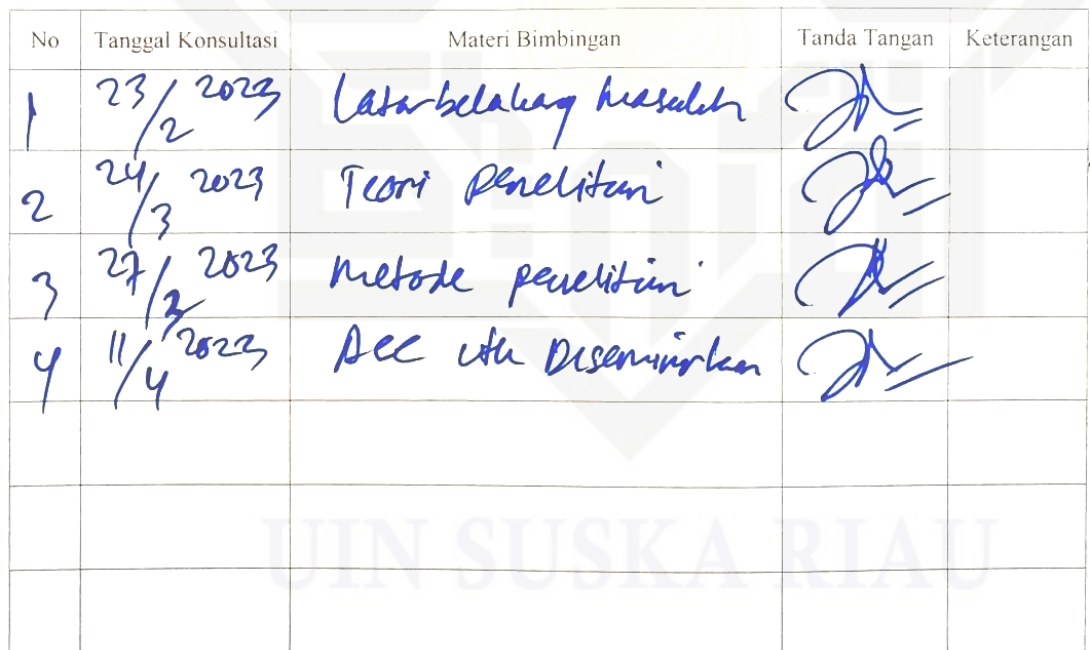 No Tanggal Konsultasi Materi Bimbingan Tanda Tangan Keterangan
1 23/2 2023 Latar belakang masalah
2 24/3 2023 Teori penelitian
3 27/3 2023 Metode penelitian
4 11/4 2023 Acc utk Diseminarkan
UIN SUSKA RIAU